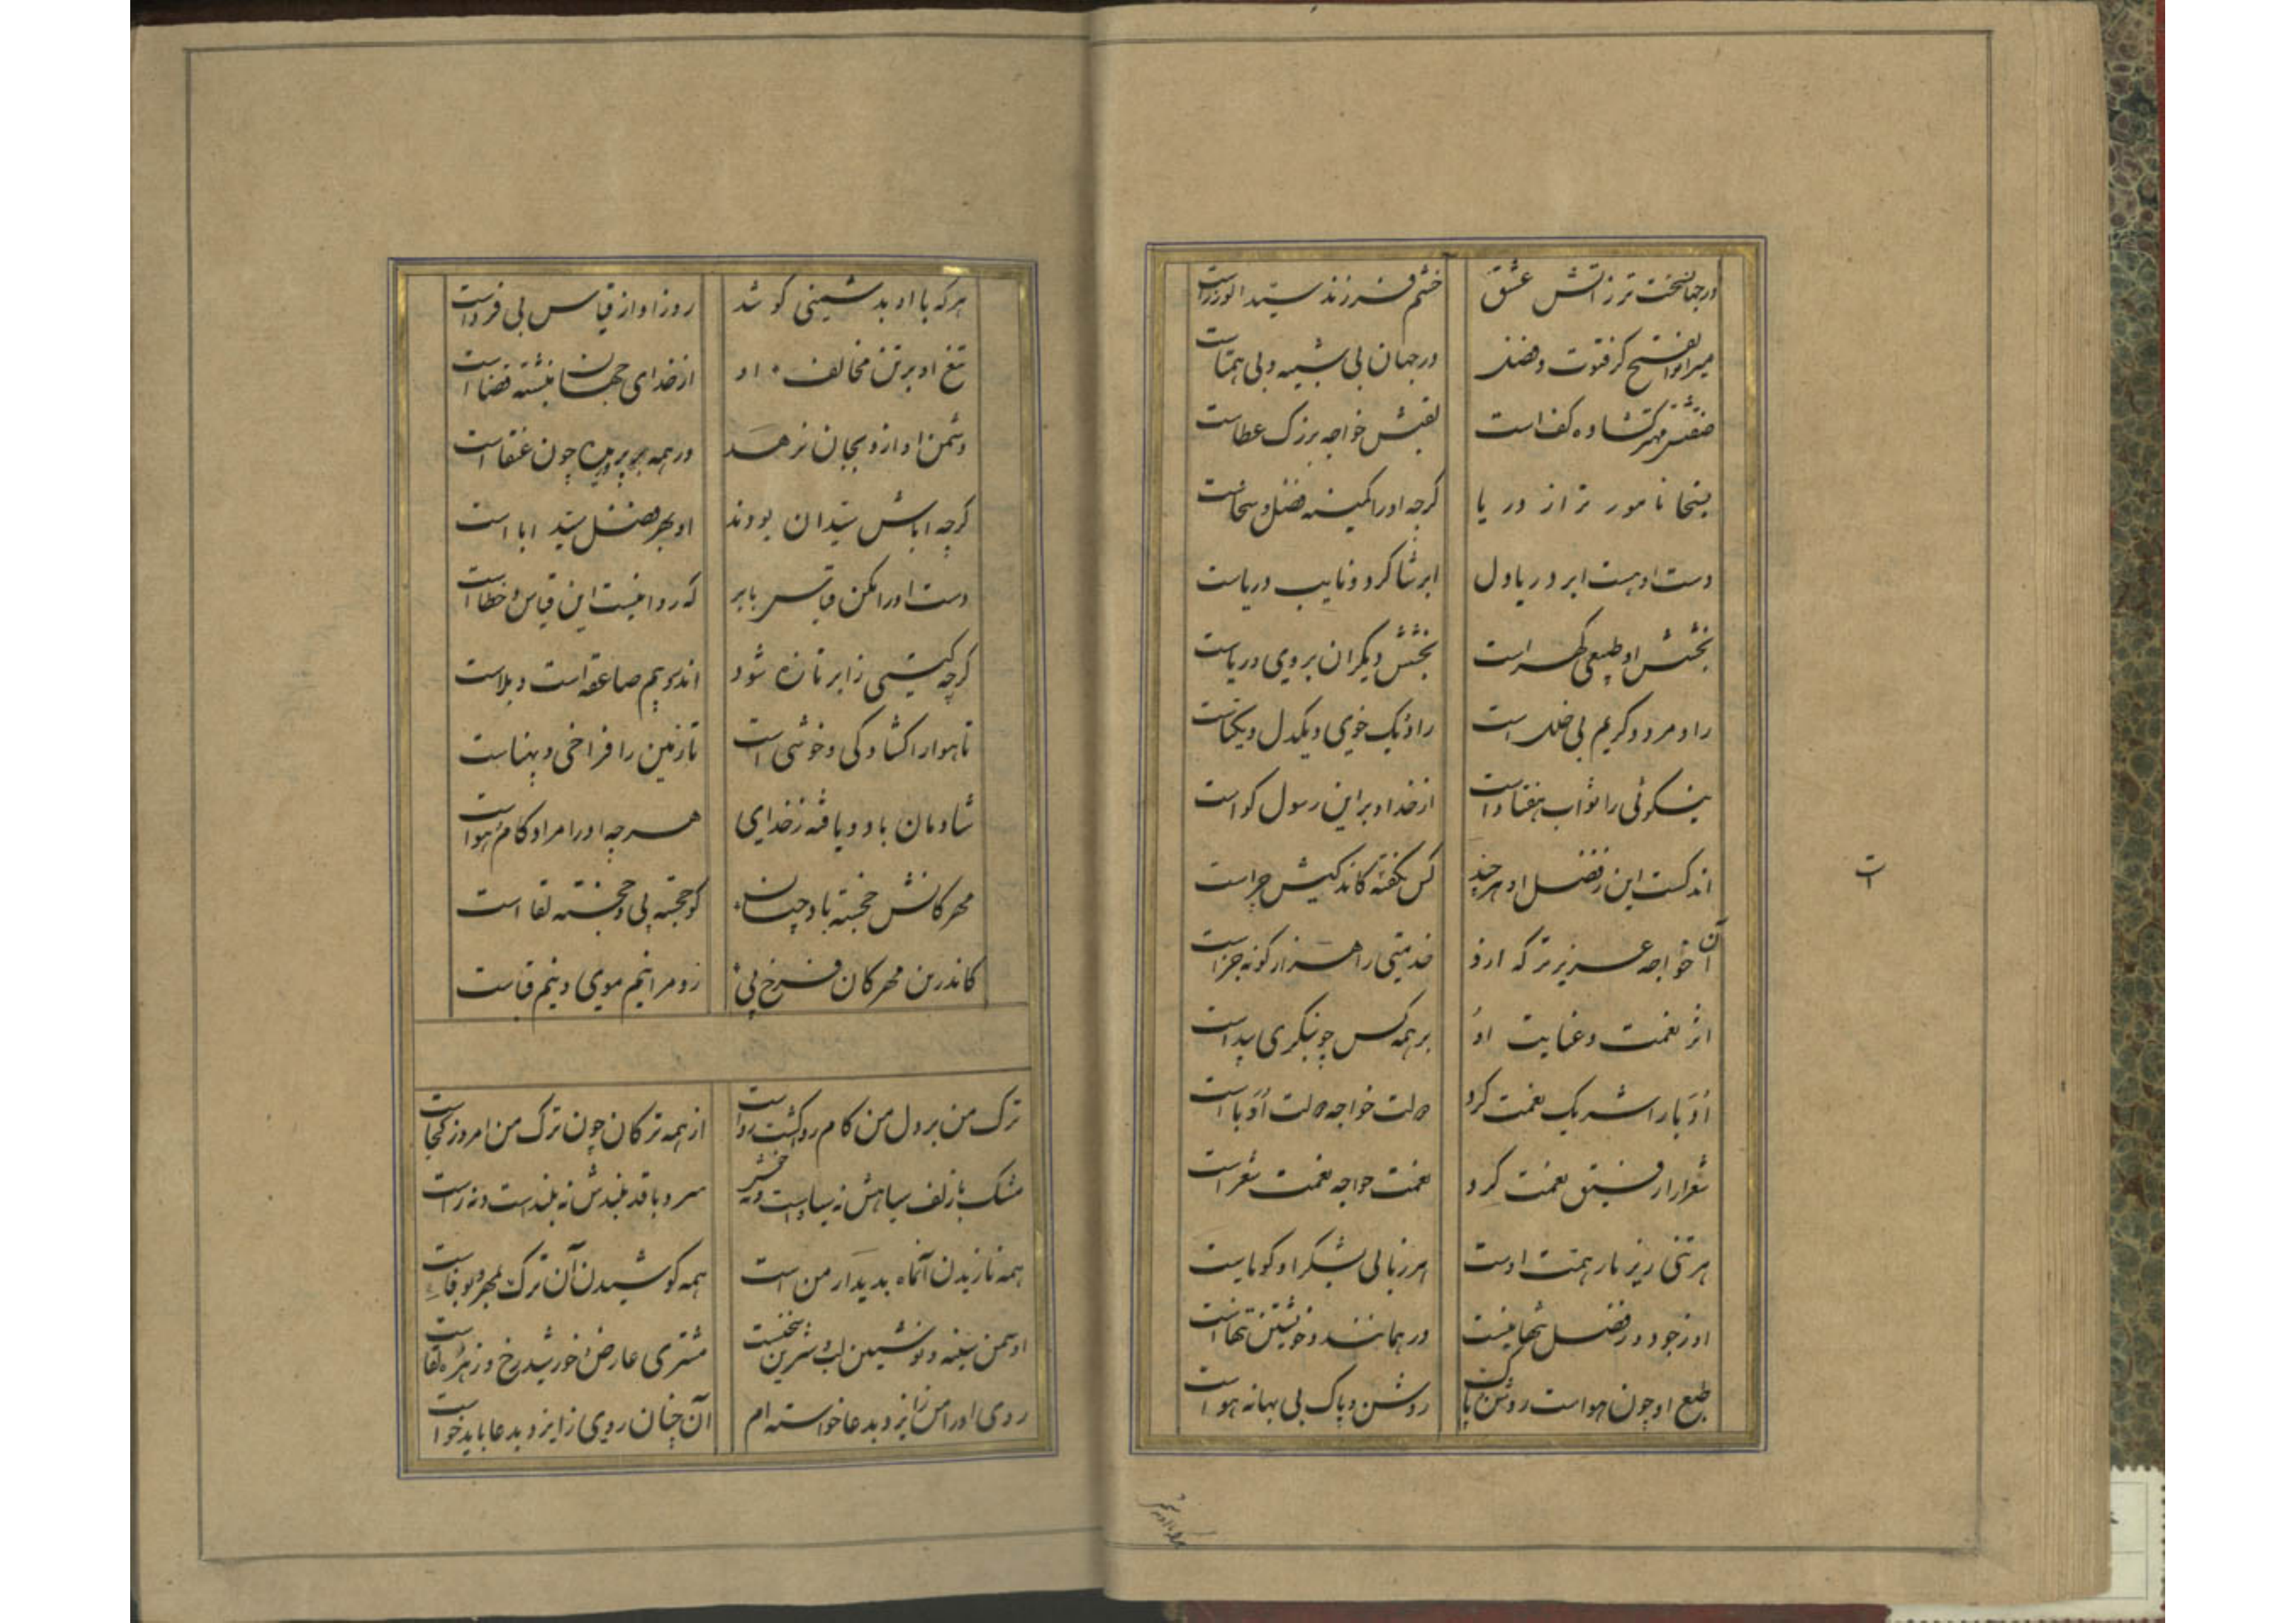 درجهان سخت تر ز آتش عشق خشم فرزند سید الوزراست
میر ابوالفتح کز فتوت وفضل درجهان بی شبیه و بی همتاست
صفتش مهتر کشاده کف است لقبش خواجه بزرک عطاست
بسخا نامور تر از دریا کرچه اورا کمینه فضل و سخاست
دست او هست ابر و دریا دل ابر شاکرد و نایب دریاست
بخشش او طبیعی کهر است بخشش دیکران بروی و ریاست
راد مرد و کریم بی خلل است راد و نیک خوی و یکدل و یکتاست
نیکوئی را ثواب هفتاد است از خدا و براین رسول کواست
اندکست این ز فضل او هرچند کس نکفته کاندکیش چراست
آن خواجه عزیز تر که ازو خدمتی را هزار کونه جزاست
اثر نعمت و عنایت او بر همه کس چو بنکری پیداست
ادبا را شریک نعمت کرد دولت خواجه دولت ادبا است
شعرا را رفیق نعمت کرد نعمت خواجه نعمت شعراست
هر تنی زیر بار همت اوست هر زبانی بشکر او کویاست
او ز جود و ز فضل تنها نیست در همانند و خویشتن تنها است
طبع او چون هواست روشن و پاک روشن و پاک بی بهانه هواست
ت
هرکه با او بدشمنی کوشد روز او از قیاس بی فرداست
تیغ او بر تن مخالف او از خدای جهان نبشته قضا است
دشمن او ازو بجان نرهد ور همه بر پریدن چون عنقا است
کرچه اباش سیدان بودند او بهر فضل سید ابا است
دست اورا مکن قیاس بابر که روا نیست این قیاس و خطا است
کرچه کیتی ز ابر تازه شود اندرو بیم صاعقه است و بلاست
تا هوا را کشادکی و خوشی است تا زمین را فراخی و پهناست
شادمان باد و یافته ز خدای هرچه اورا مراد و کام و هوا است
مهرکانش خجسته باد چنان کو خجسته پی و خجسته لقا است
کاندرین مهرکان فرخ پی زو مرا نیم موی و نیم قباست
ترک من بر دل من کام روا کشت رواست از همه ترکان چون ترک من امروز کجاست
مشک با زلف سیاهش نه سیاه است و نه خوش سرو با قد بلندش نه بلند است و نه راست
همه نازیدن آنماه بدیدار من است همه کوشیدن آن ترک بمهر و بوفاست
او سمن سینه و نوشین لب و شیرین سخنست مشتری عارض و خورشید رخ و زهره لقاست
روی اورا من از ایزد بدعا خواسته ام آن چنان روی ز ایزد بدعا باید خواست